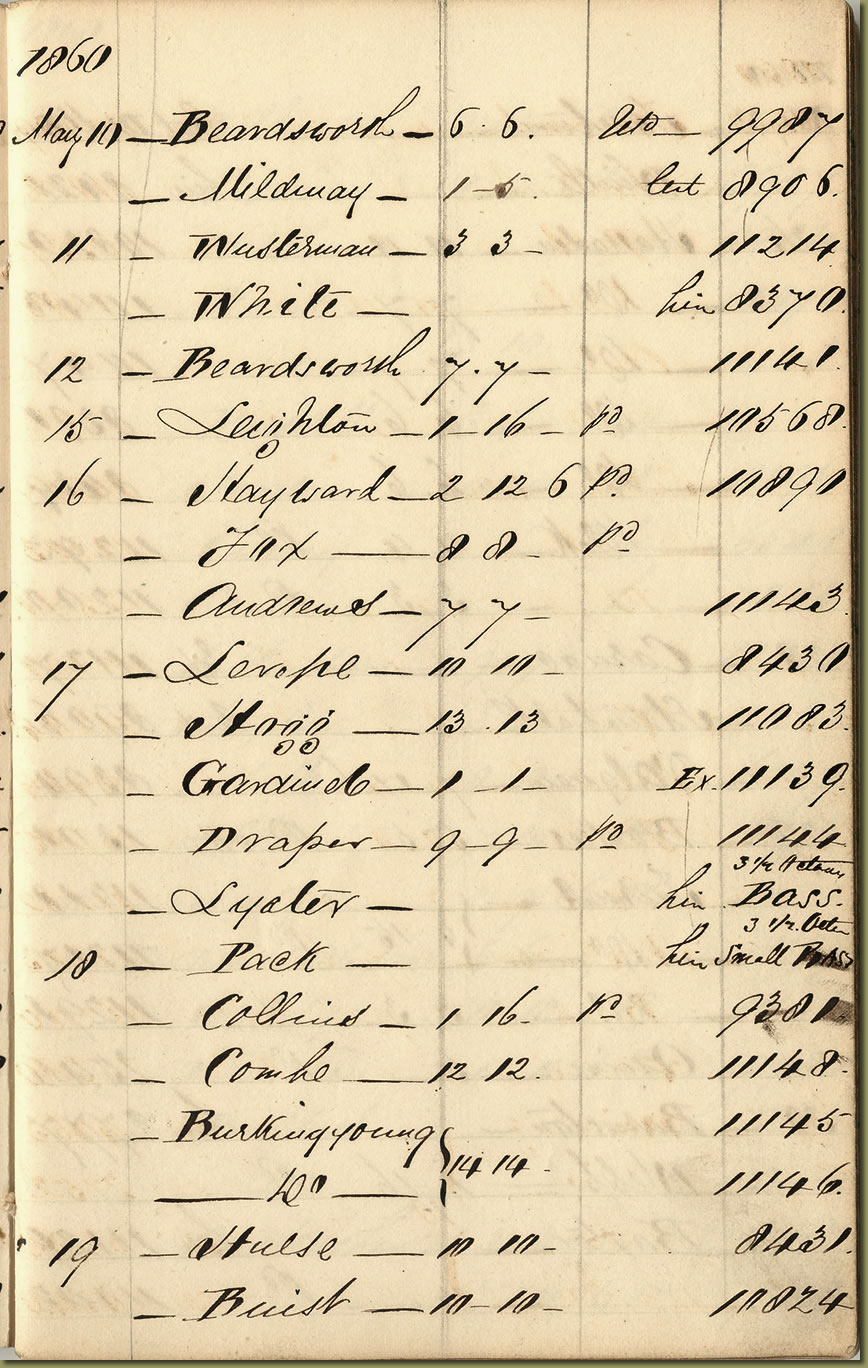 1860
May 10 — Beardsworth — 6 . 6 . — 9987
— Mildmay — 1 - 5 . 8906.
11 — Wusterman — 3 3 — 11214
— White — hir 8370.
12 — Beardsworth 7 . 7 — 11141.
15 — Leighton — 1 - 16 — pd 10568.
16 — Hayward — 2 12 6 pd. 10890
— Fox — 8 8 — pd
— Andrews — 7 7 — 11143.
17 — Lerope — 10 10 — 8430
— Hogg — 13 . 13 11083.
— Gardiner — 1 - 1 — Ex. 11139.
— Draper — 9 - 9 — pd 11144
3 1/2 Octave
— Lyster — hir Bass.
3 1/2 Octa
18 — Pack — hir Small Bass
— Collins — 1 16 . pd 9381.
— Combe — 12 12 . 11148.
— Burkingyoung 11145
— Do — } 14 14 — 11146.
19 — Hulse — 10 10 — 8431.
— Buist — 10 - 10 — 10824